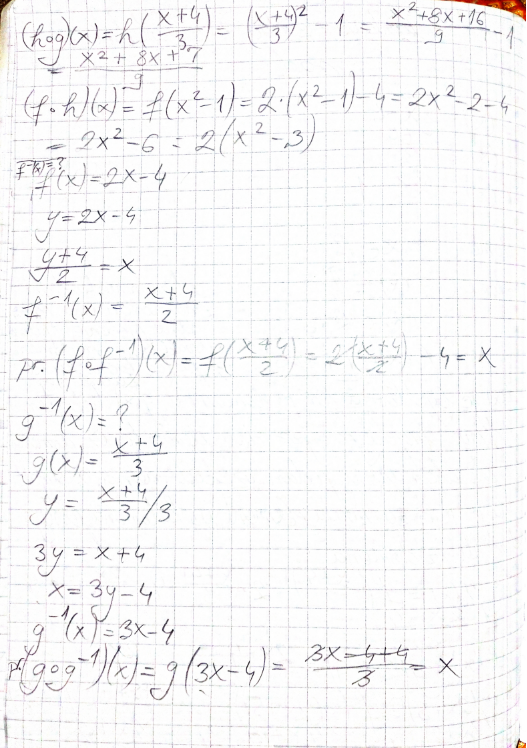 (h∘g)(x) = h((x+4)/3) = ((x+4)/3)² - 1 = (x²+8x+16)/9 - 1
= (x²+8x+7)/9
(f∘h)(x) = f(x²-1) = 2·(x²-1)-4 = 2x²-2-4
= 2x²-6 = 2(x²-3)
f⁻¹(x)=?
f(x)=2x-4
y=2x-4
(y+4)/2 = x
f⁻¹(x) = (x+4)/2
pr. (f∘f⁻¹)(x) = f((x+4)/2) = 2((x+4)/2) - 4 = x
g⁻¹(x) = ?
g(x) = (x+4)/3
y = (x+4)/3 /3
3y = x+4
x = 3y-4
g⁻¹(x) = 3x-4
pr. (g∘g⁻¹)(x) = g(3x-4) = (3x-4+4)/3 = x